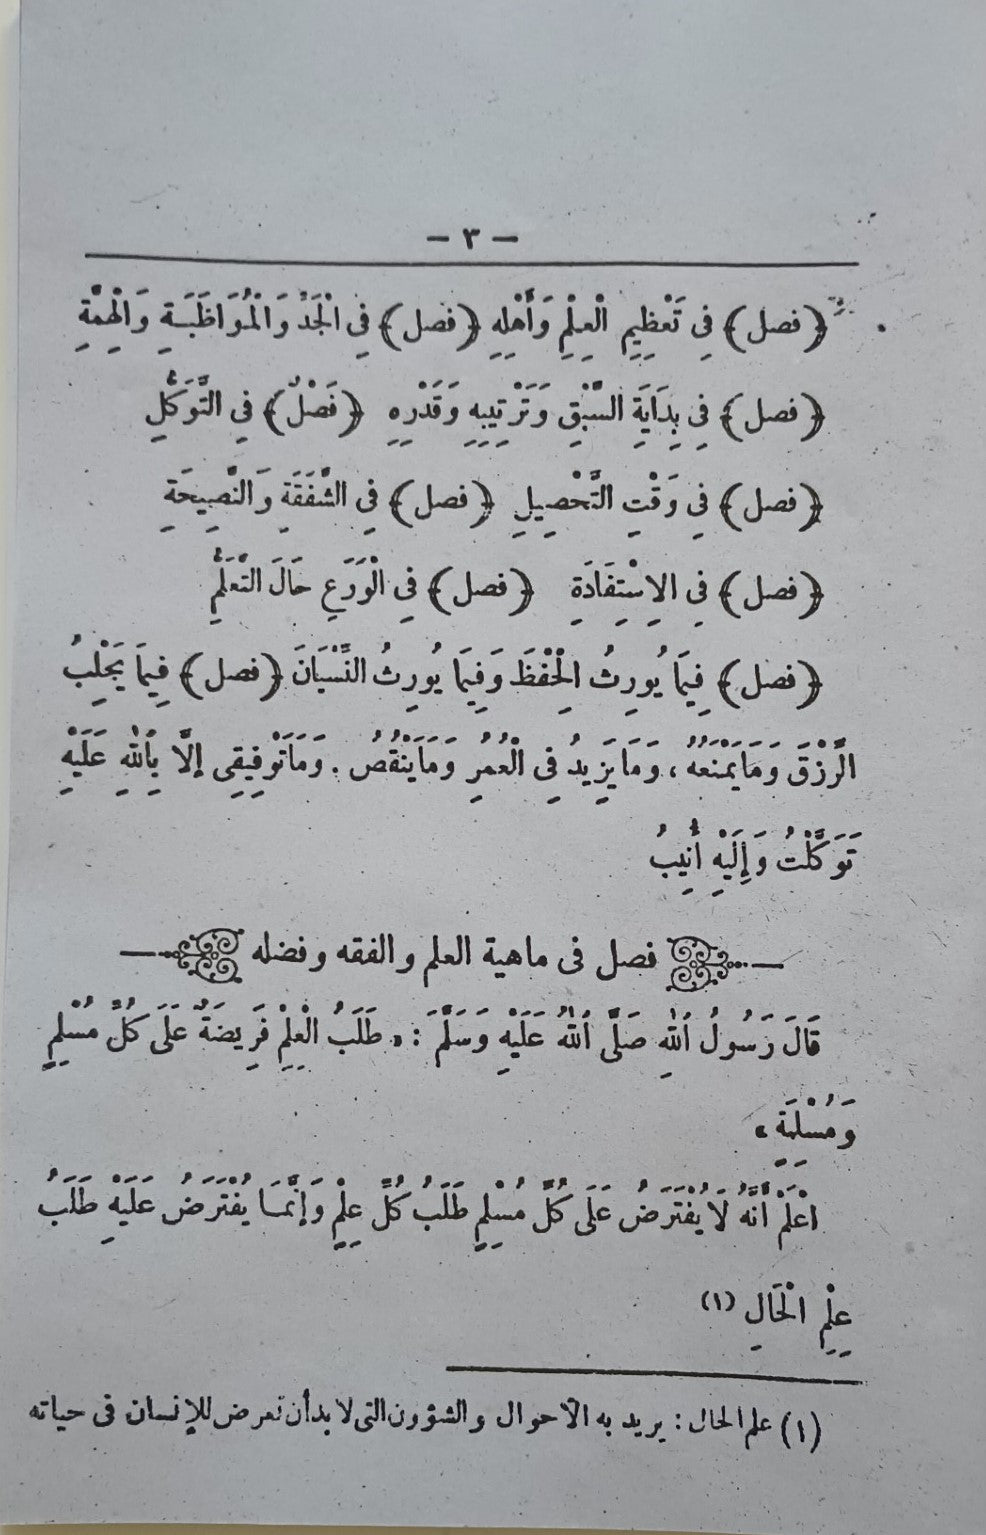 — ٣ —
﴿فصل﴾ فِى تَعْظِيِمِ الْعِلْمِ وَأَهْلِهِ ﴿فصل﴾ فِى الْجَدِّ وَالْمُوَاظَبَةِ وَالْهِمَّةِ
﴿فصل﴾ فِى بِدَايَةِ السَّبْقِ وَتَرْتِيبِهِ وَقَدْرِهِ ﴿فَصْلٌ﴾ فِى التَّوَكُّلِ
﴿فصل﴾ فِى وَقْتِ التَّحْصِيلِ ﴿فصل﴾ فِى الشَّفَقَةِ وَالنَّصِيحَةِ
﴿فصل﴾ فِى الِاسْتِفَادَةِ ﴿فصل﴾ فِى الْوَرَعِ حَالَ التَّعَلُّمِ
﴿فصل﴾ فِيمَا يُورِثُ الْحِفْظَ وَفِيمَا يُورِثُ النِّسْيَانَ ﴿فصل﴾ فِيمَا يَجْلِبُ
الرِّزْقَ وَمَا يَمْنَعُهُ ، وَمَا يَزِيدُ فِى الْعُمُرِ وَمَا يَنْقُصُ . وَمَا تَوْفِيقِى إلَّا بِاللهِ عَلَيْهِ
تَوَكَّلْتُ وَإِلَيْهِ أُنِيبُ
فصل فى ماهية العلم والفقه وفضله
قَالَ رَسُولُ اللهِ صَلَّى اللهُ عَلَيْهِ وَسَلَّمَ : « طَلَبُ الْعِلْمِ فَرِيضَةٌ عَلَى كُلِّ مُسْلِمٍ
وَمُسْلِمَةٍ »
اعْلَمْ أَنَّهُ لَا يُفْتَرَضُ عَلَى كُلِّ مُسْلِمٍ طَلَبُ كُلِّ عِلْمٍ وَإنَّمَا يُفْتَرَضُ عَلَيْهِ طَلَبُ
عِلْمِ الْحَالِ (١)
(١) علم الحال : يريد به الأحوال والشؤون التى لا بد أن تعرض للإنسان فى حياته